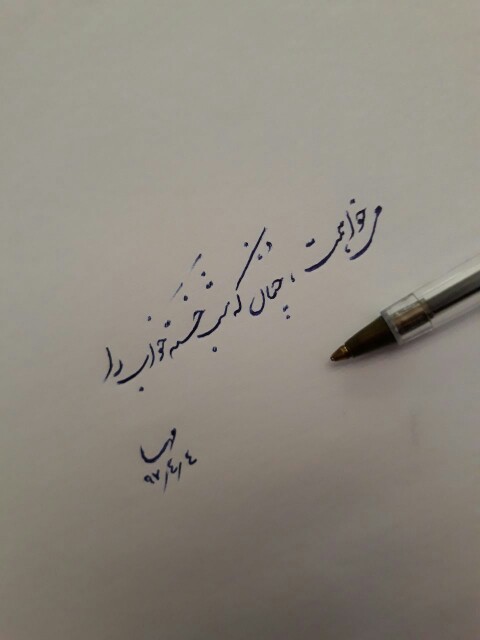 می خواهمت ، چنان که شب خسته خواب را
مهسا
۹۷/٤/٤